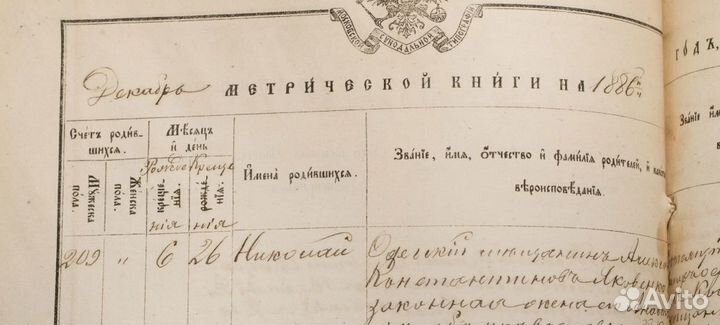 МОСКОВСКОЙ СѴНОДАЛЬНОЙ ТИПОГРАФІИ
Декабрь МЕТРИ́ЧЕСКОЙ КНИ́ГИ НА 1886й
ГОДЪ,
Счетъ роди́вшихся.
Мѣсяцъ и҆ день
И҆мена̀ роди́вшихся.
Зва́нїе, и҆мя, ѻ҆тчество и҆ фами́лїя роди́телей, и҆ како́гѡ
вѣроисповѣ́данїя.
Зва́нїе и҆мя
Мꙋ́жеска пола.
Же́нска пола.
Рожде
ния
Креще
ния
209 " 6 26 Николай
Одесскій мещанинъ
Константиновъ Яковенко
законная жена
Avito